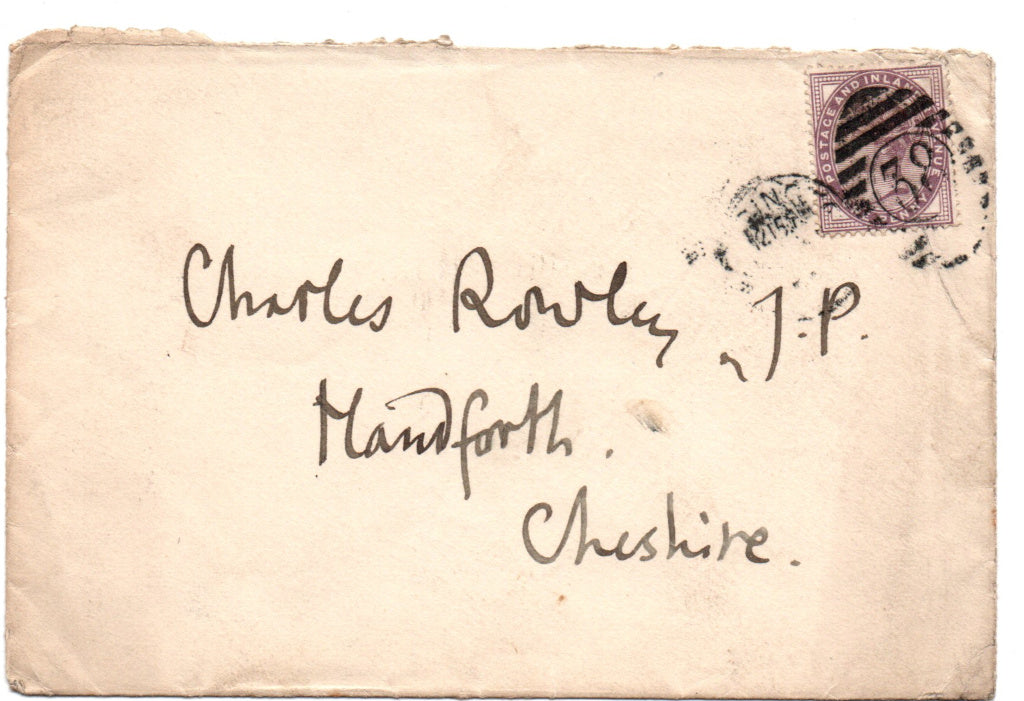 POSTAGE AND INLAND REVENUE
39
Charles Rowley, J.P.
Handforth.
Cheshire.